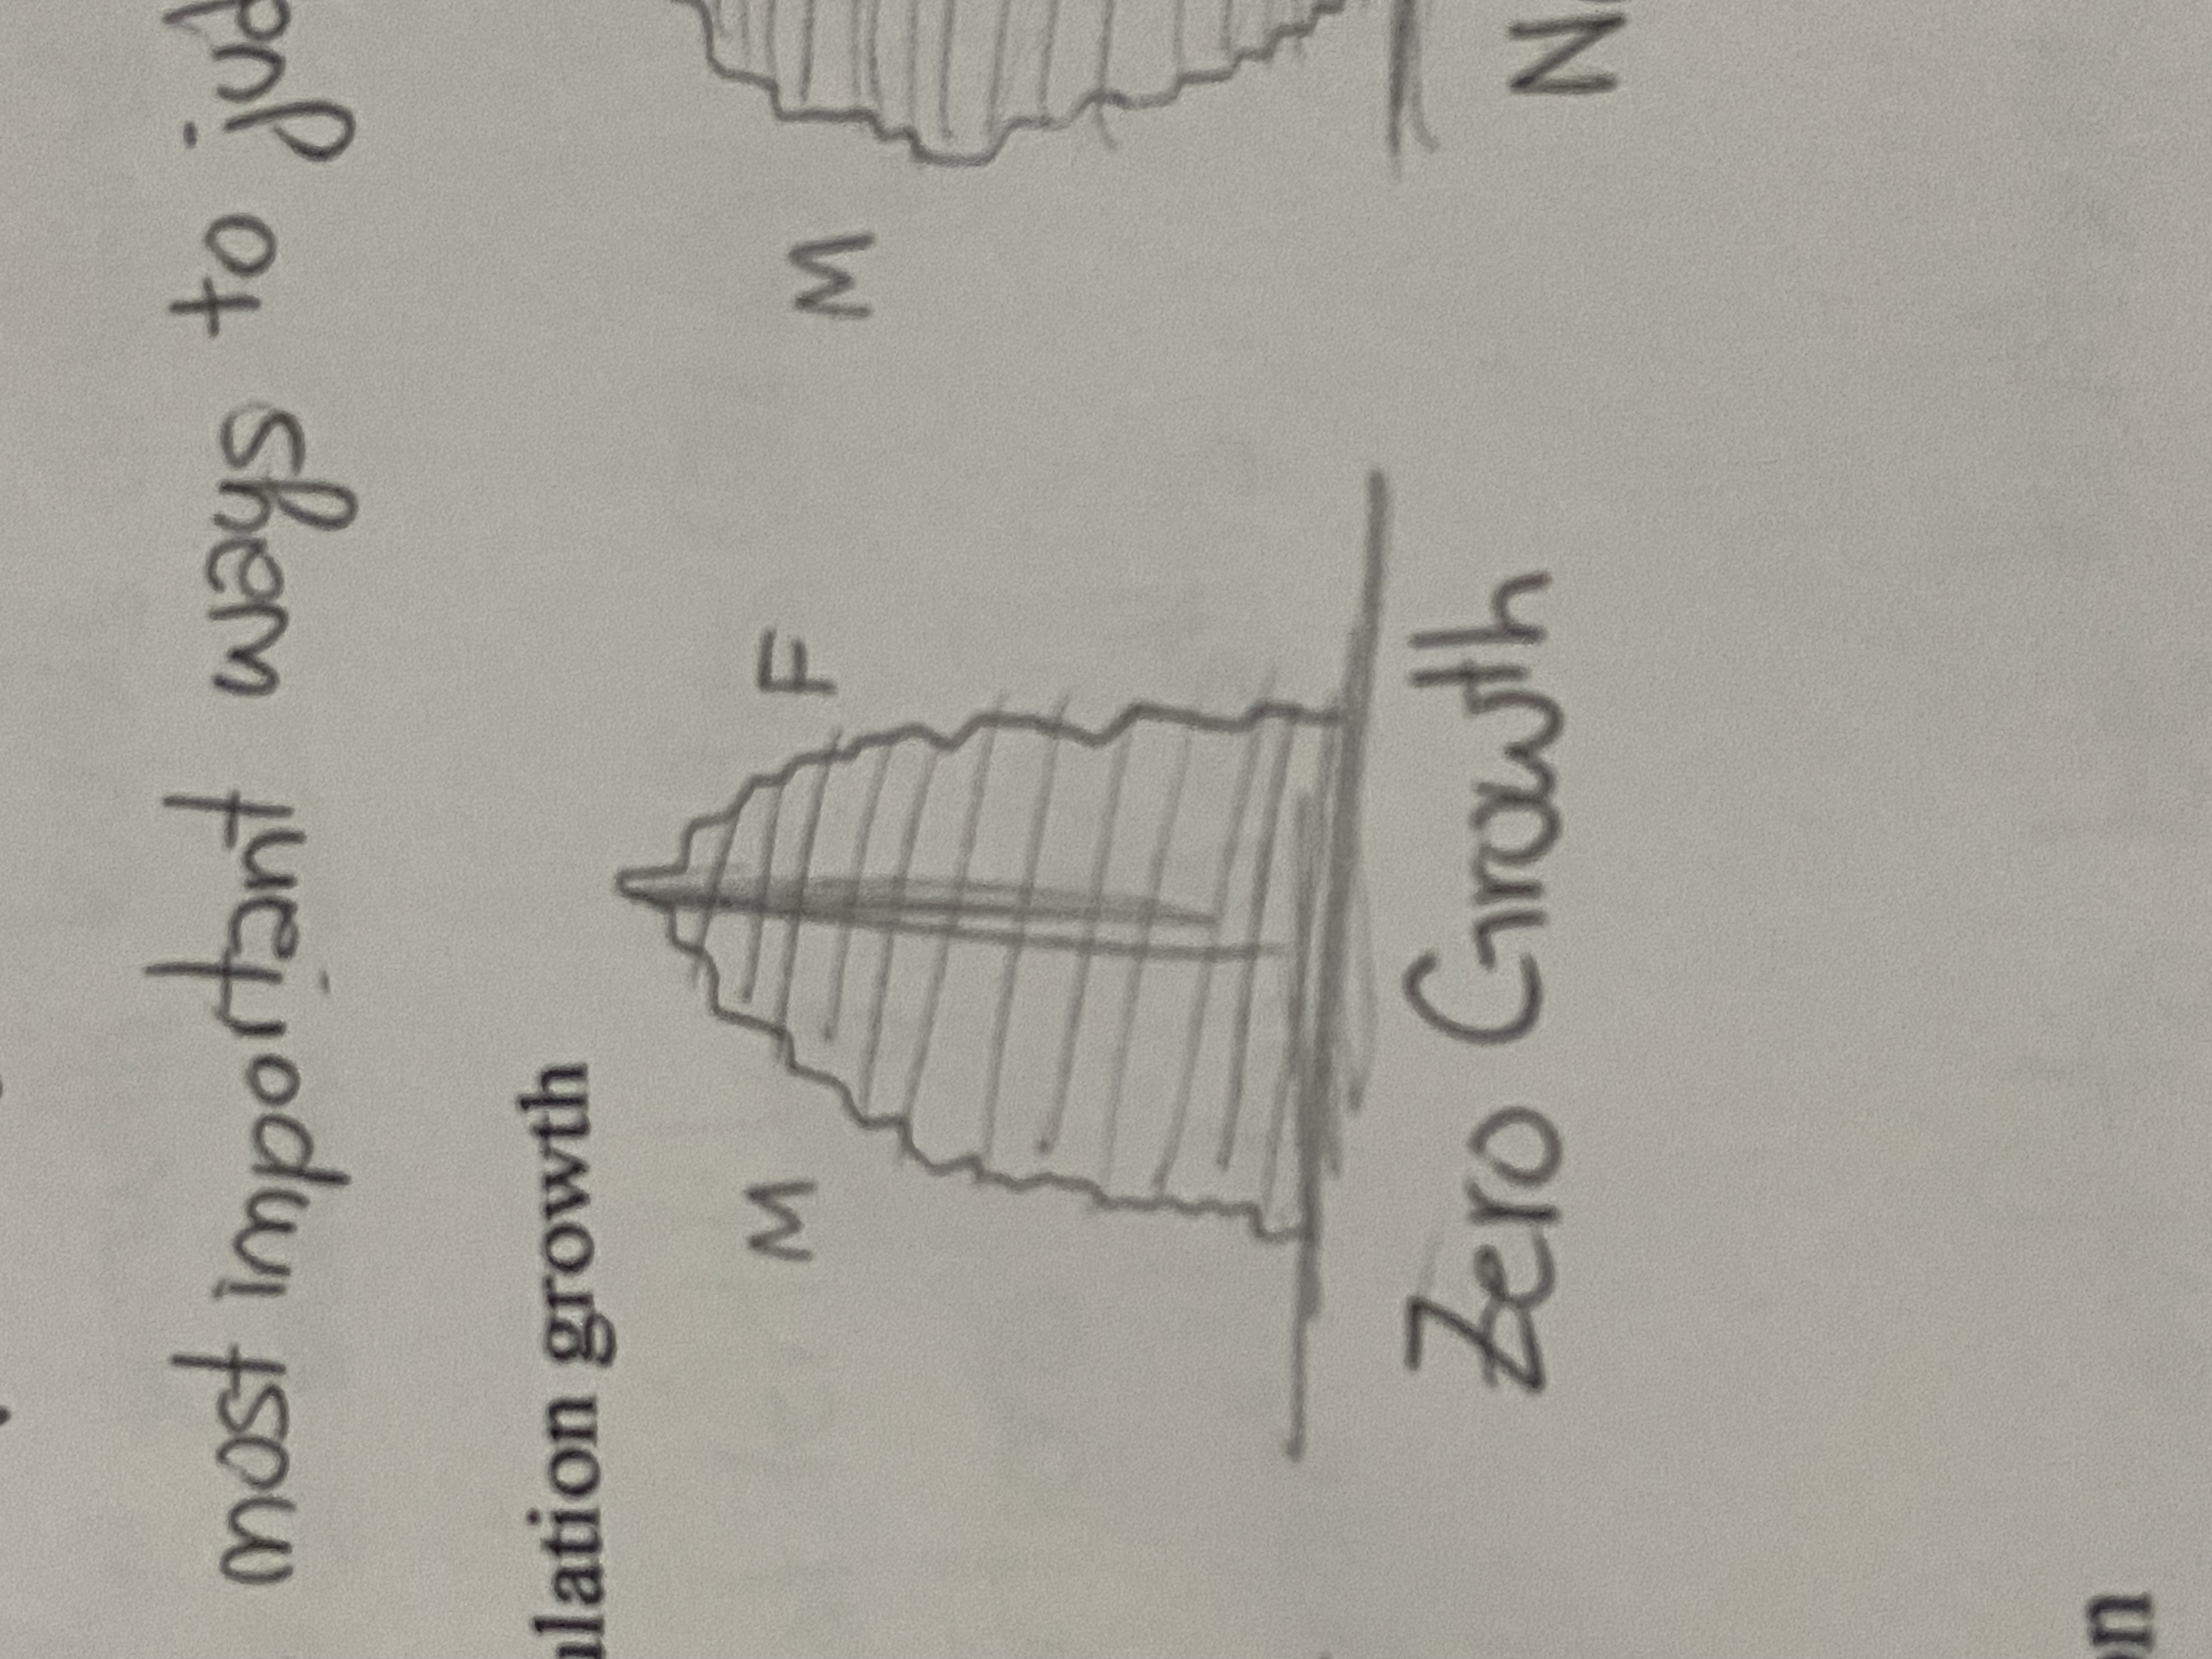 most important ways to
ulation growth
M F M
Zero Growth
on